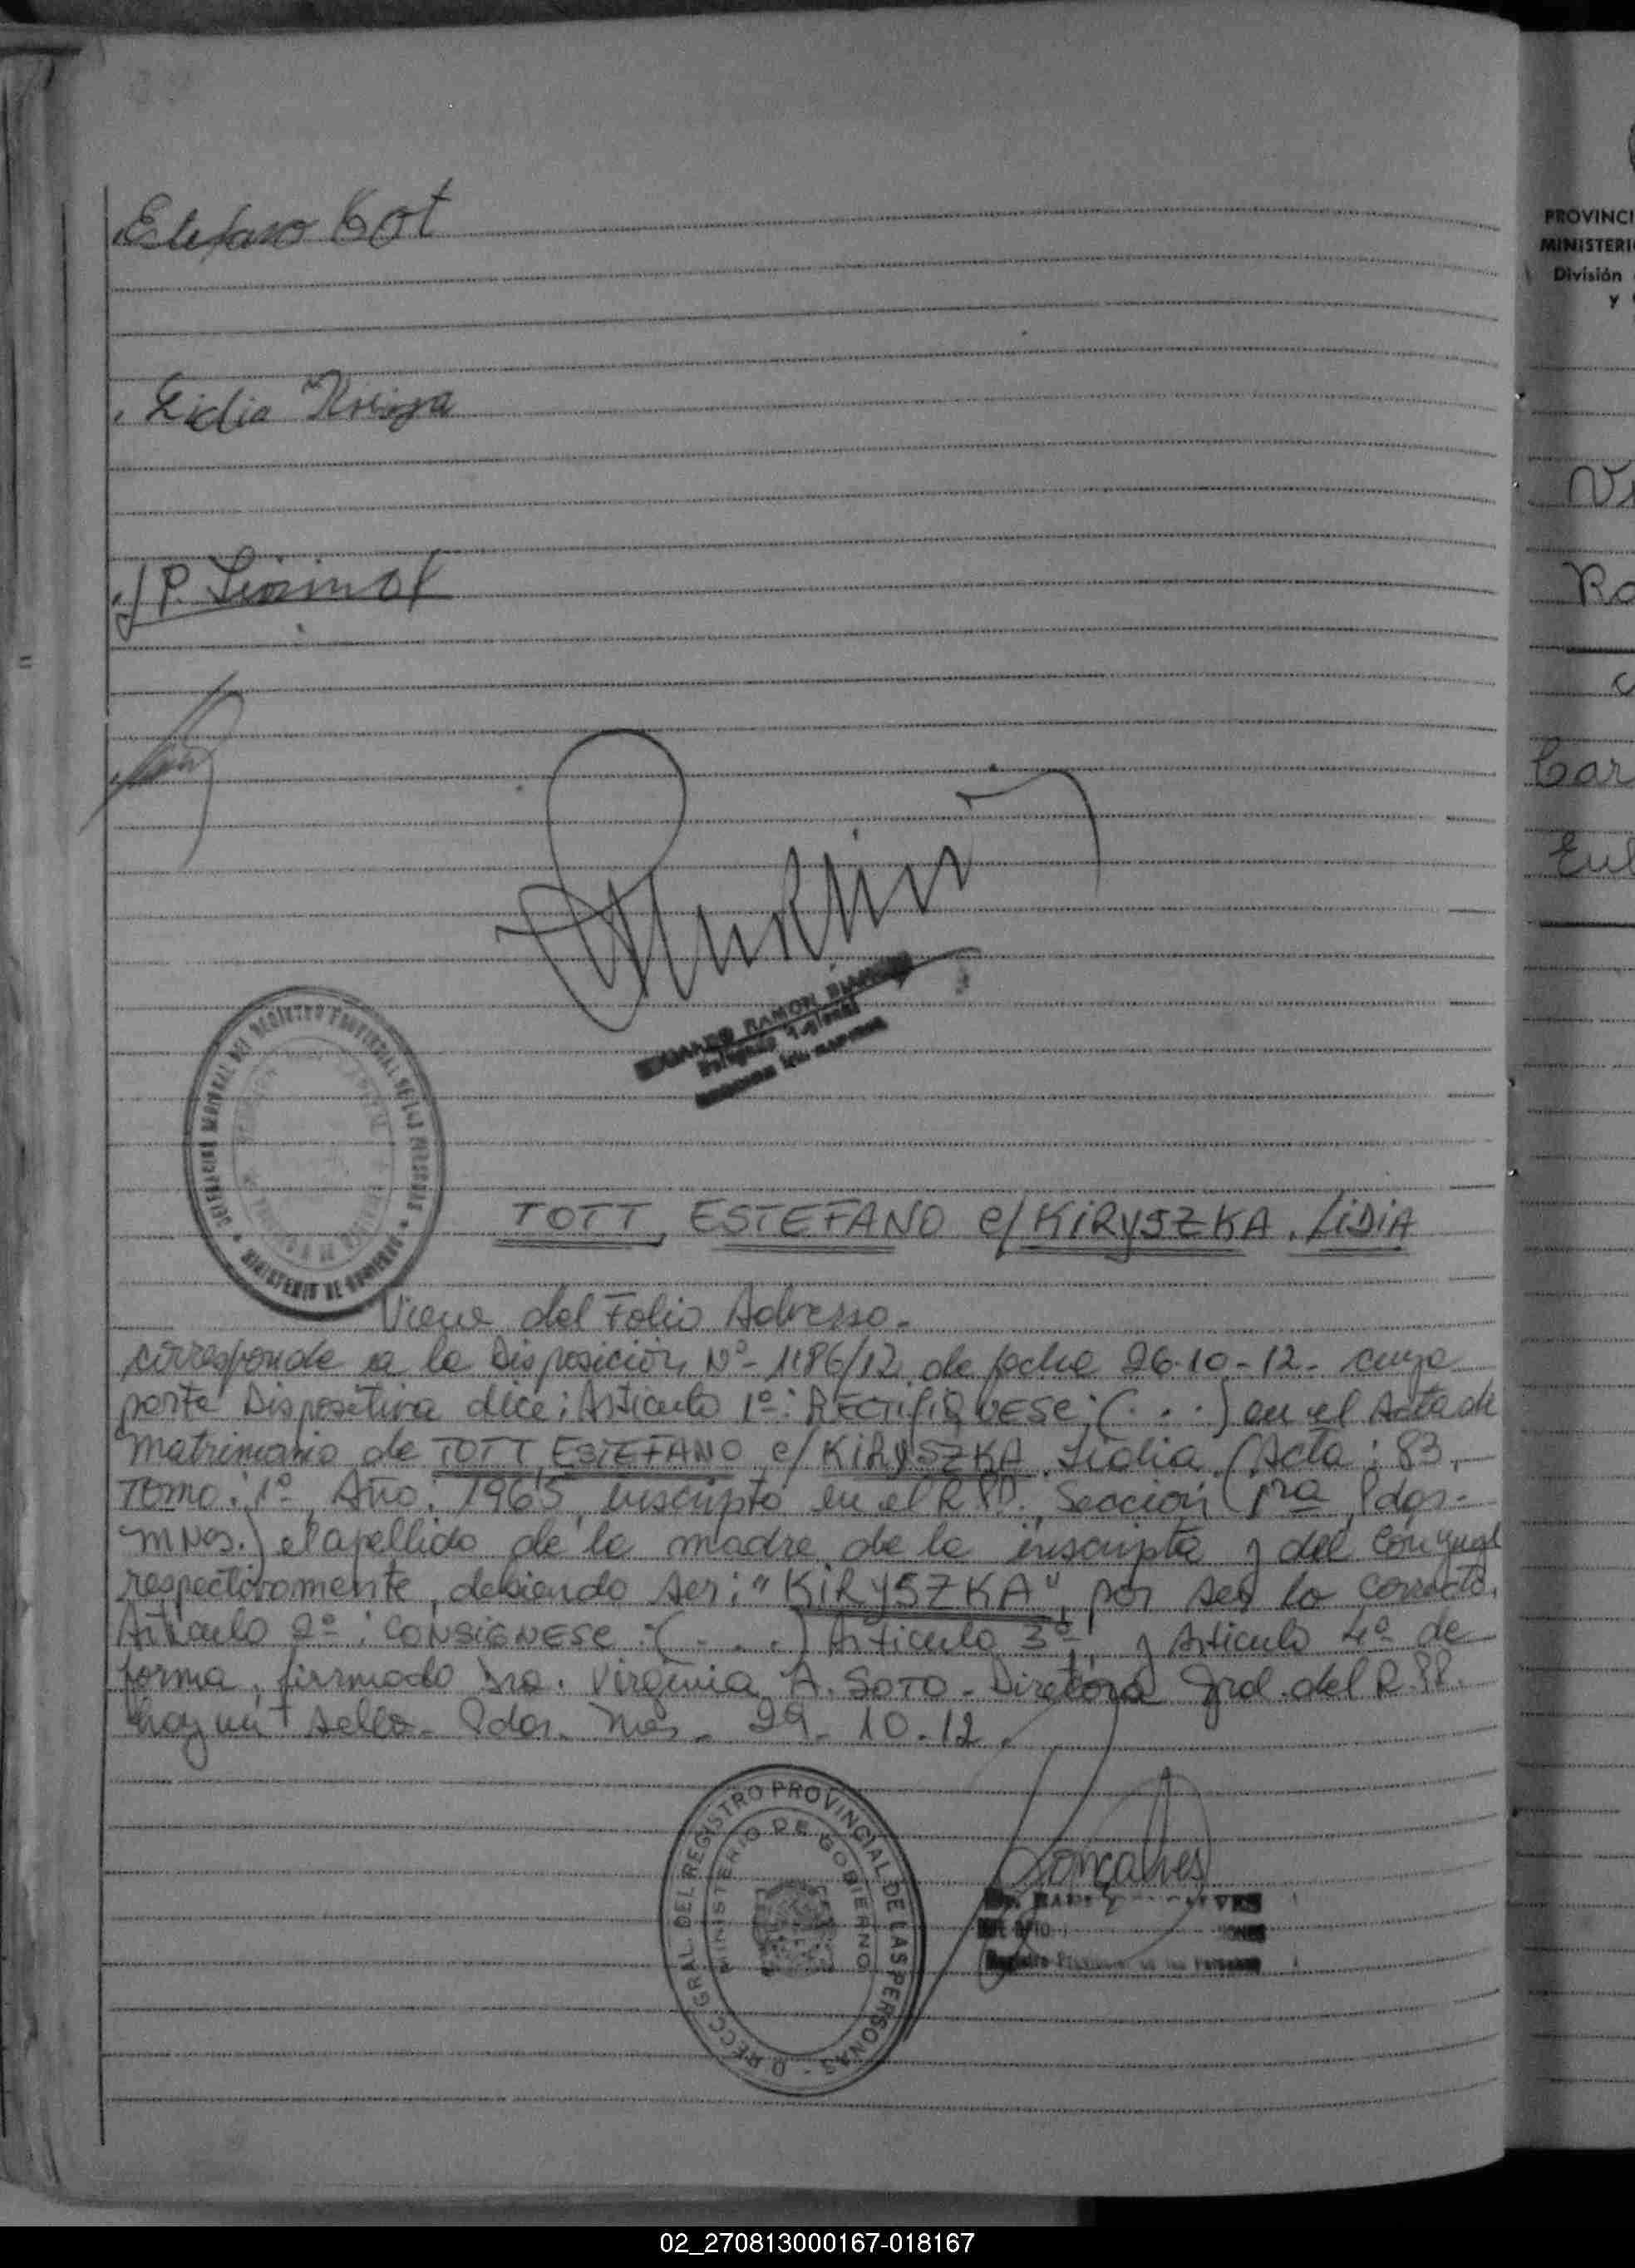 Lidia
J P.
RAMON
DEL REGISTRO PROVINCIAL DE LAS PERSONAS
MINISTERIO DE GOBIERNO
TOTT, ESTEFANO c/ KiRySZKA, LiDiA
Viene del Folio Adverso.-
corresponde a la Disposición Nº- 1186/12 de fecha 26-10-12- cuya
parte Dispositiva dice: Articulo 1º: RECTIFIQUESE: (...) en el Acta de
matrimonio de TOTT ESTEFANO c/ KiRySZKA Lidia (Acta: 83,
Tomo: 1º, Año: 1965 inscripto en el R.P.P. Sección 1ra Pdas-
mnes.) el apellido de la madre de la inscripta y del cónyuge
respectivamente, debiendo ser: "KiRySZKA", por ser lo correcto.
Articulo 2º: CONSIGNESE: (...) Articulo 3º, y Articulo 4º de
forma, firmado Dra. Virginia A. SOTO - Directora Gral. del R.PP.
hay un sello- Pdas. Mnes- 29-10-12.
D RECC. GRAL. DEL REGISTRO PROVINCIAL DE LAS PERSONAS -
MINISTERIO DE GOBIERNO
Goncalves
PROVINCI
MINISTERI
División
y
Ro
Car
Eul
02_270813000167-018167